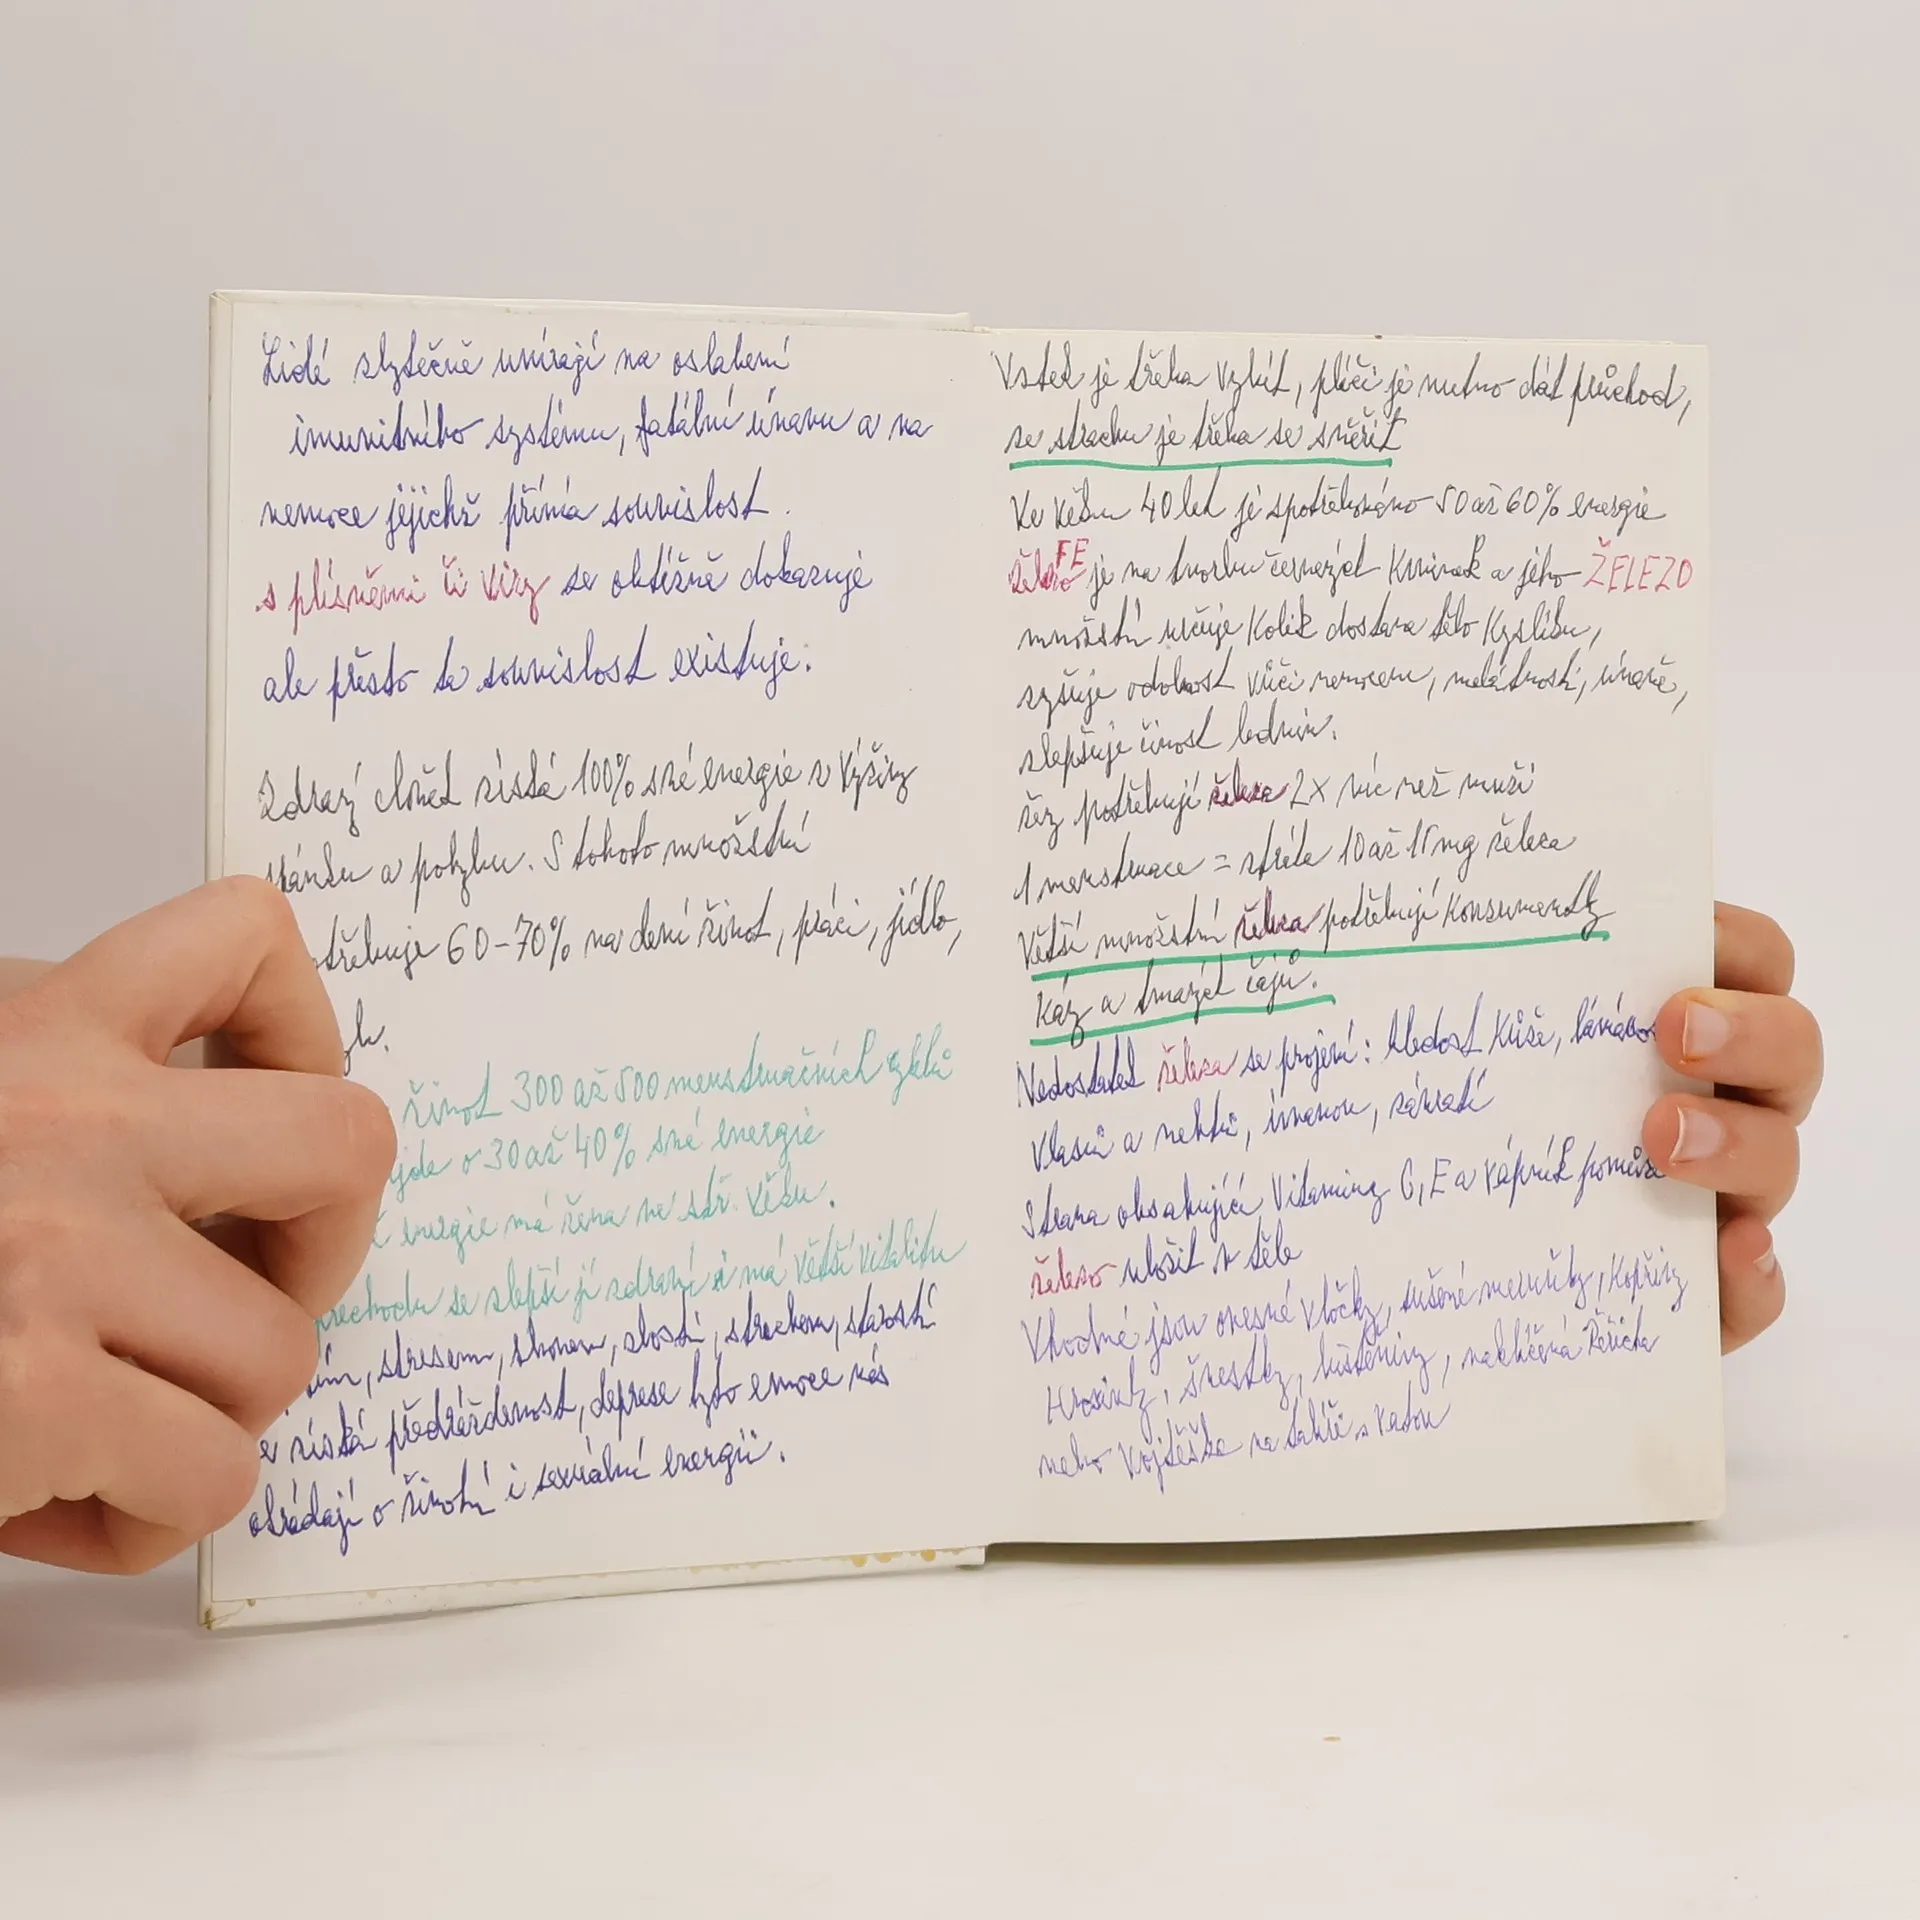 Lidé zbytečně umírají na oslabení
imunitního systému, fatální únavu a na
nemoce jejichž přímá souvislost
s plísněmi či viry se obtížně dokazuje
ale přesto ta souvislost existuje.
Zdravý člověk získá 100% své energie z výživy
spánku a pohybu. S tohoto množství
třebuje 60-70% na dení život, práci, jídlo,
život 300 až 500 menstruačních cyklů
jde o 30 až 40% své energie
energie má žena ve stř. věku.
přechodu se zlepší jí zdraví i má větší vitalitu
stresem, shonem, zlostí, strachem, starostí
získá předrážděnost, deprese tyto emoce nás
okrádají o životní i sexuální energii.
Vztek je třeba vybít, pláči je nutno dát průchod,
se strachu je třeba se svěřit
Ve věku 40 let je spotřebováno 50 až 60% energie
FE
železo je na tvorbu červených krvinek a jeho ŽELEZO
množství určuje kolik dostane tělo kyslíku,
zvyšuje odolnost vůči nemocem, malátnosti, únavě,
zlepšuje činost ledvin.
ženy potřebují železa 2x víc než muži
1 menstruace = ztráta 10 až 15 mg železa
Větší množství železa potřebují konzumenty
kávy a tmavých čajů.
Nedostatek železa se projeví: bledost kůže, lámavost
vlasů a nehtů, únavou, závratí
Strava obsahující vitaminy C, E a vápník pomůže
železo uložit v těle
Vhodné jsou ovesné vločky, sušené meruňky, kopřivy
Hrozinky, švestky, luštěniny, naklíčená Řeřicha
nebo vojtěška na talíři s vatou